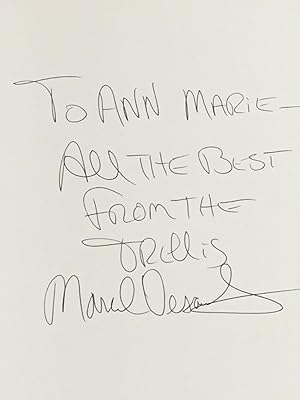 To Ann Marie—
All the Best
From the
Trellis
Marcel Desaulniers